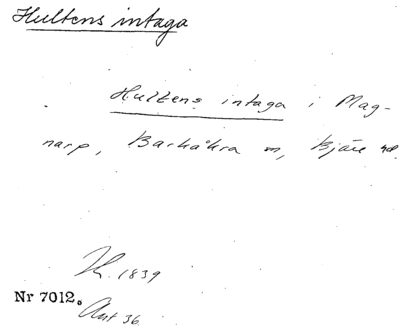 Hultens intaga
Hultens intaga i Mag-
narp, Barkåkra sn, Bjäre hd.
1839
Nr 7012.
Ant 36